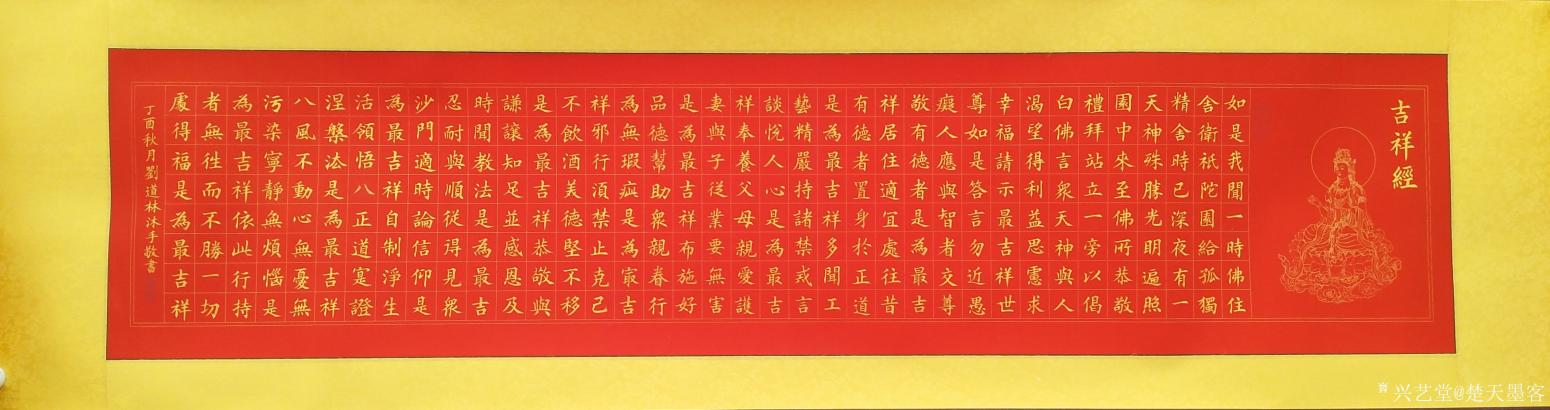 吉祥經
如是我聞一時佛住
舍衛祇陀園給孤獨
精舍時已深夜有一
天神殊勝光明遍照
園中來至佛所恭敬
禮拜站立一旁以偈
白佛言衆天神與人
渴望得利益思慮求
幸福請示最吉祥世
尊如是答言勿近愚
癡人應與智者交尊
敬有德者是為最吉
祥居住適宜處往昔
有德者置身於正道
是為最吉祥多聞工
藝精嚴持諸禁戒言
談悅人心是為最吉
祥奉養父母親愛護
妻與子從業要無害
是為最吉祥布施好
品德幫助衆親眷行
為無瑕疵是為最吉
祥邪行須禁止克己
不飲酒美德堅不移
是為最吉祥恭敬與
謙讓知足並感恩及
時聞教法是為最吉
忍耐與順從得見衆
沙門適時論信仰是
為最吉祥自制淨生
活領悟八正道寔證
涅槃法是為最吉祥
八風不動心無憂無
污染寧靜無煩惱是
為最吉祥依此行持
者無往而不勝一切
處得福是為最吉祥
丁酉秋月劉道林沐手敬書
兴艺堂@楚天墨客